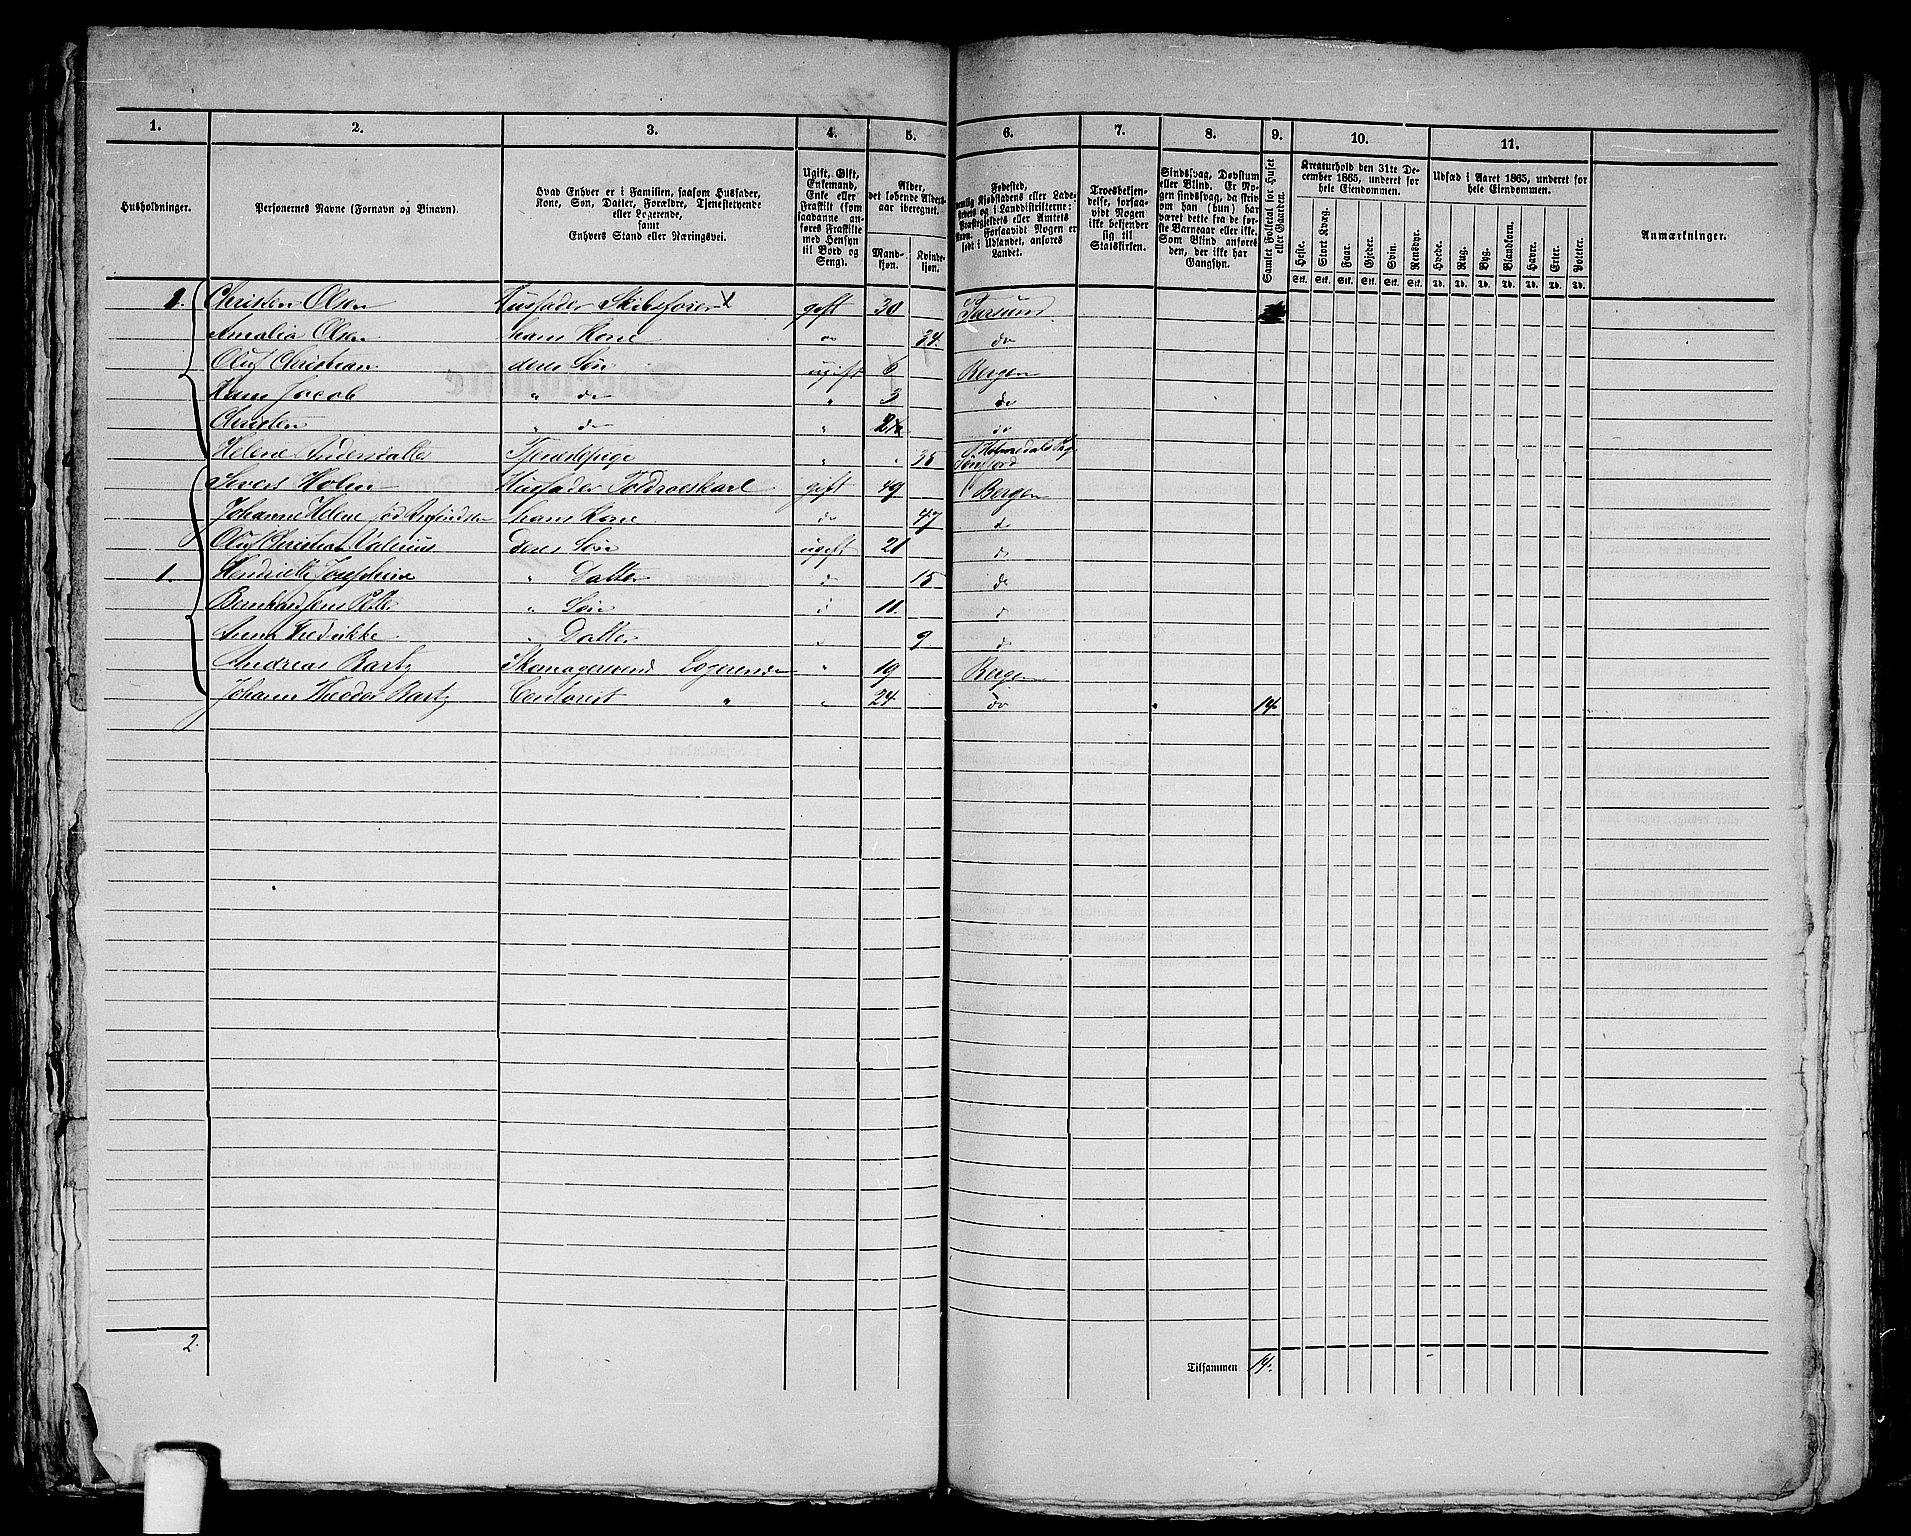 1. 2. 3. 4. 5. 6. 7. 8. 9. 10. 11.
Husholdninger.
Personernes Navne (Fornavn og Binavn).
Hvad Enhver er i Familien, saasom Husfader,
Kone, Søn, Datter, Forældre, Tjenestetyende
eller Logerende,
samt
Enhvers Stand eller Næringsvei.
Ugift, Gift,
Enkemand,
Enke eller
Fraskilt (som
saadanne an-
føres Fraskilte
med Hensyn
til Bord og
Seng).
Alder,
det løbende Alders-
aar iberegnet.
Mand-
kjøn.
Kvinde-
kjøn.
Fødested,
nemlig Kjøbstadens eller Lade-
stedets og i Landdistrikterne:
Præstegjeldets eller Amtets
Navn. Forsaavidt Nogen er
født i Udlandet, anføres
Landet.
Troesbekjen-
delse, forsaa-
vidt Nogen
ikke bekjender
sig til
Statskirken.
Sindssvag, Døvstum
eller Blind. Er No-
gen sindssvag, da skriv
om han (hun) har
været dette fra de før-
ste Barneaar eller ikke.
Som Blind anføres
den, der ikke har
Gangsyn.
Samlet Folketal for Huset
eller Gaarden.
Kreaturhold den 31te De-
cember 1865, underet for
hele Eiendommen.
Heste. Stort Kvæg. Faar. Gjeder. Svin. Rensdyr.
Stk. Stk. Stk. Stk. Stk. Stk.
Udsæd i Aaret 1865, underet for
hele Eiendommen.
Hvede. Rug. Byg. Blandkorn. Havre. Erter. Poteter.
Td. Td. Td. Td. Td. Td. Td.
Anmærkninger.
1. Christen Olsen Husfader Skibsfører gift 30 Farsund
Amalia Olsen hans Kone do 24. do
Oluf Christian deres Søn ugift 6 Bergen
Hans Jacob " do " 3 do
Christen " do " do
Helene Andersdatter Tjenestepige " " 35 Holmedals Søndfjord
Sivert Holm Husfader Toldroeskarl gift 49 Bergen
Johanne Helene hans Kone do 47 do
Oluf Christian Valerius Deres Søn ugift 21 do
1. Henriette Josephine " Datter d 15 do
Bernhard Jens " Søn d 11. d
Anna Fredrikke " Datter " 9 d
Andreas Bartz Skomagersvend Logerende " 19 Bergen
Johann Theodor Bartz " " 24 do 14
2.
Tilsammen 14.